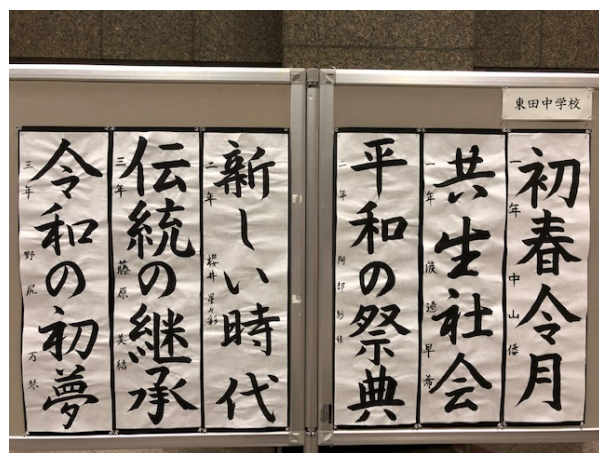 東田中学校
初春令月
一年 中山
共生社会
一年 早希
平和の祭典
二年 阿部
新しい時代
二年 櫻井
伝統の継承
三年 藤原 美結
令和の初夢
三年 野尻 万琴